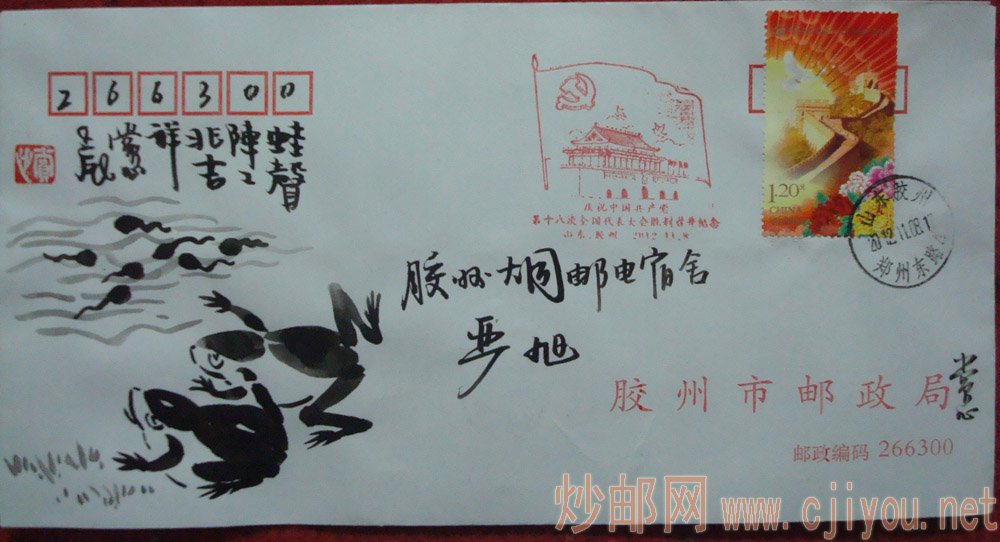 266300
蛙聲
陣〻
兆吉
祥
賞心
庆祝中国共产党
第十八次全国代表大会胜利召开纪念
山东·胶州 2012.11.8
1.20元
CHINA
山东胶州
2012.11.08.1
郑州东路
胶州大同邮电宿舍
严旭
胶州市邮政局
赏心
邮政编码 266300
炒邮网 www.cjiyou.net